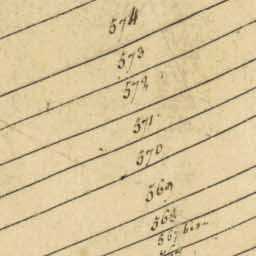 574
573
572
571
570
569
568
567 bis